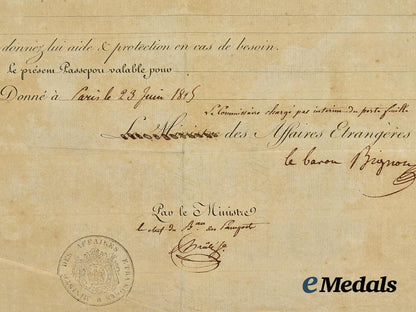 donnez lui aide & protection en cas de besoin.
Le présent Passeport valable pour
Donné à Paris le 23 Juin 1815
Le Commissaire chargé par interim du porte feuille
Le Ministre des Affaires Etrangères
le baron Bignon
Par le Ministre
le chef du B.au des Passeports
DES AFFAIRES ETRANGERES
eMedals